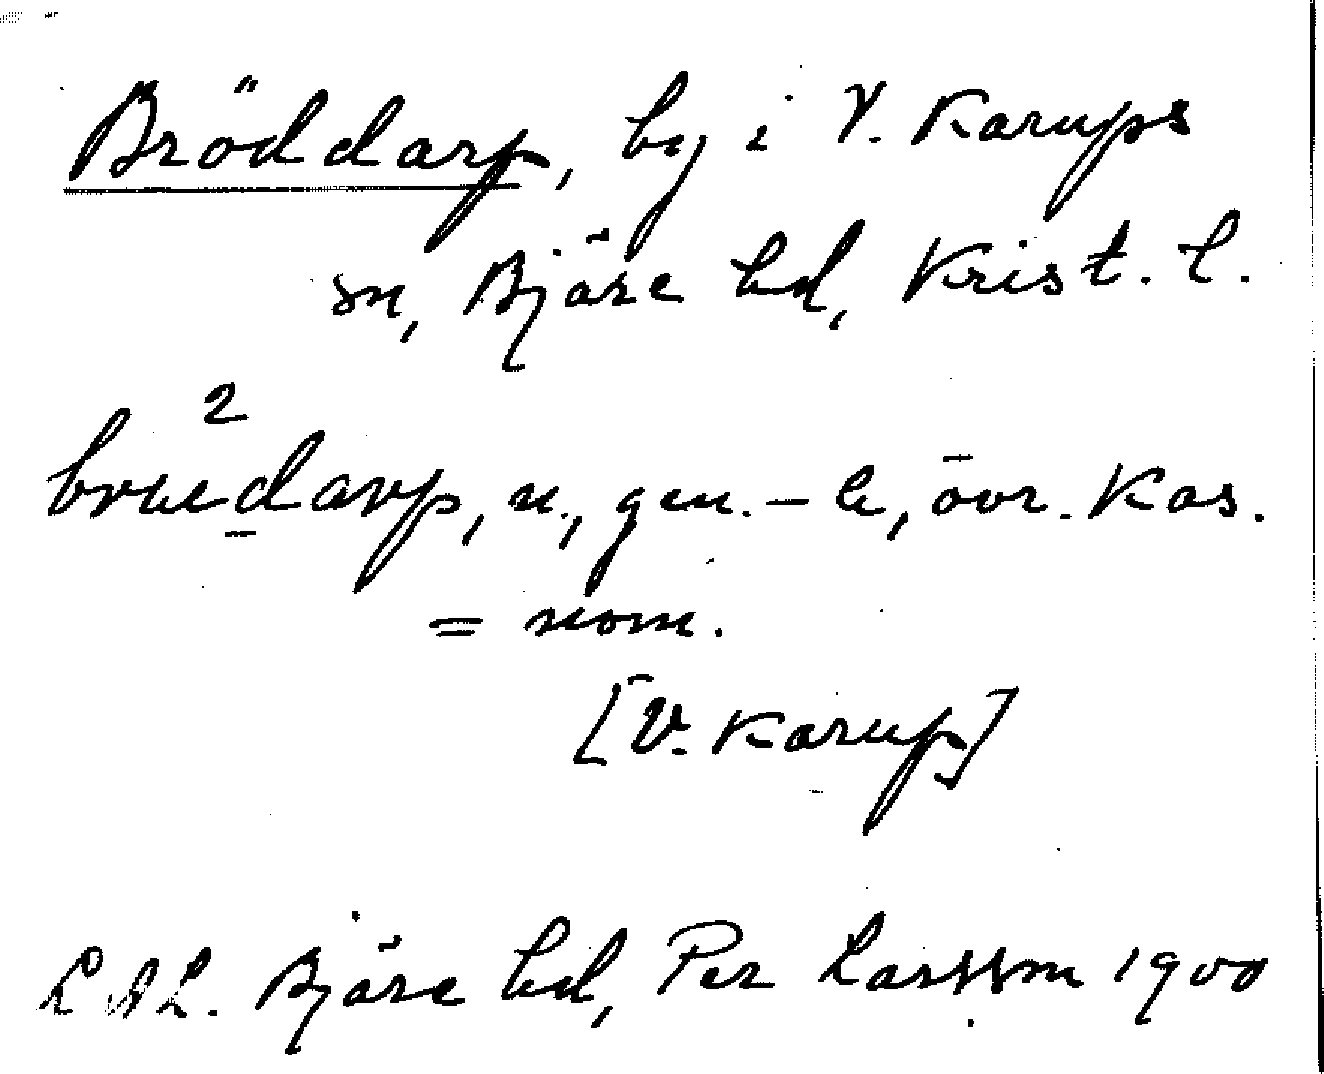 Bröddarp, by i V. Karups
sn, Bjäre hd, Krist. l.
2
brudarp, n., gen. – e, övr. Kas.
= nom.
[V. Karup]
LAL. Bjäre hd, Per Larsson 1900